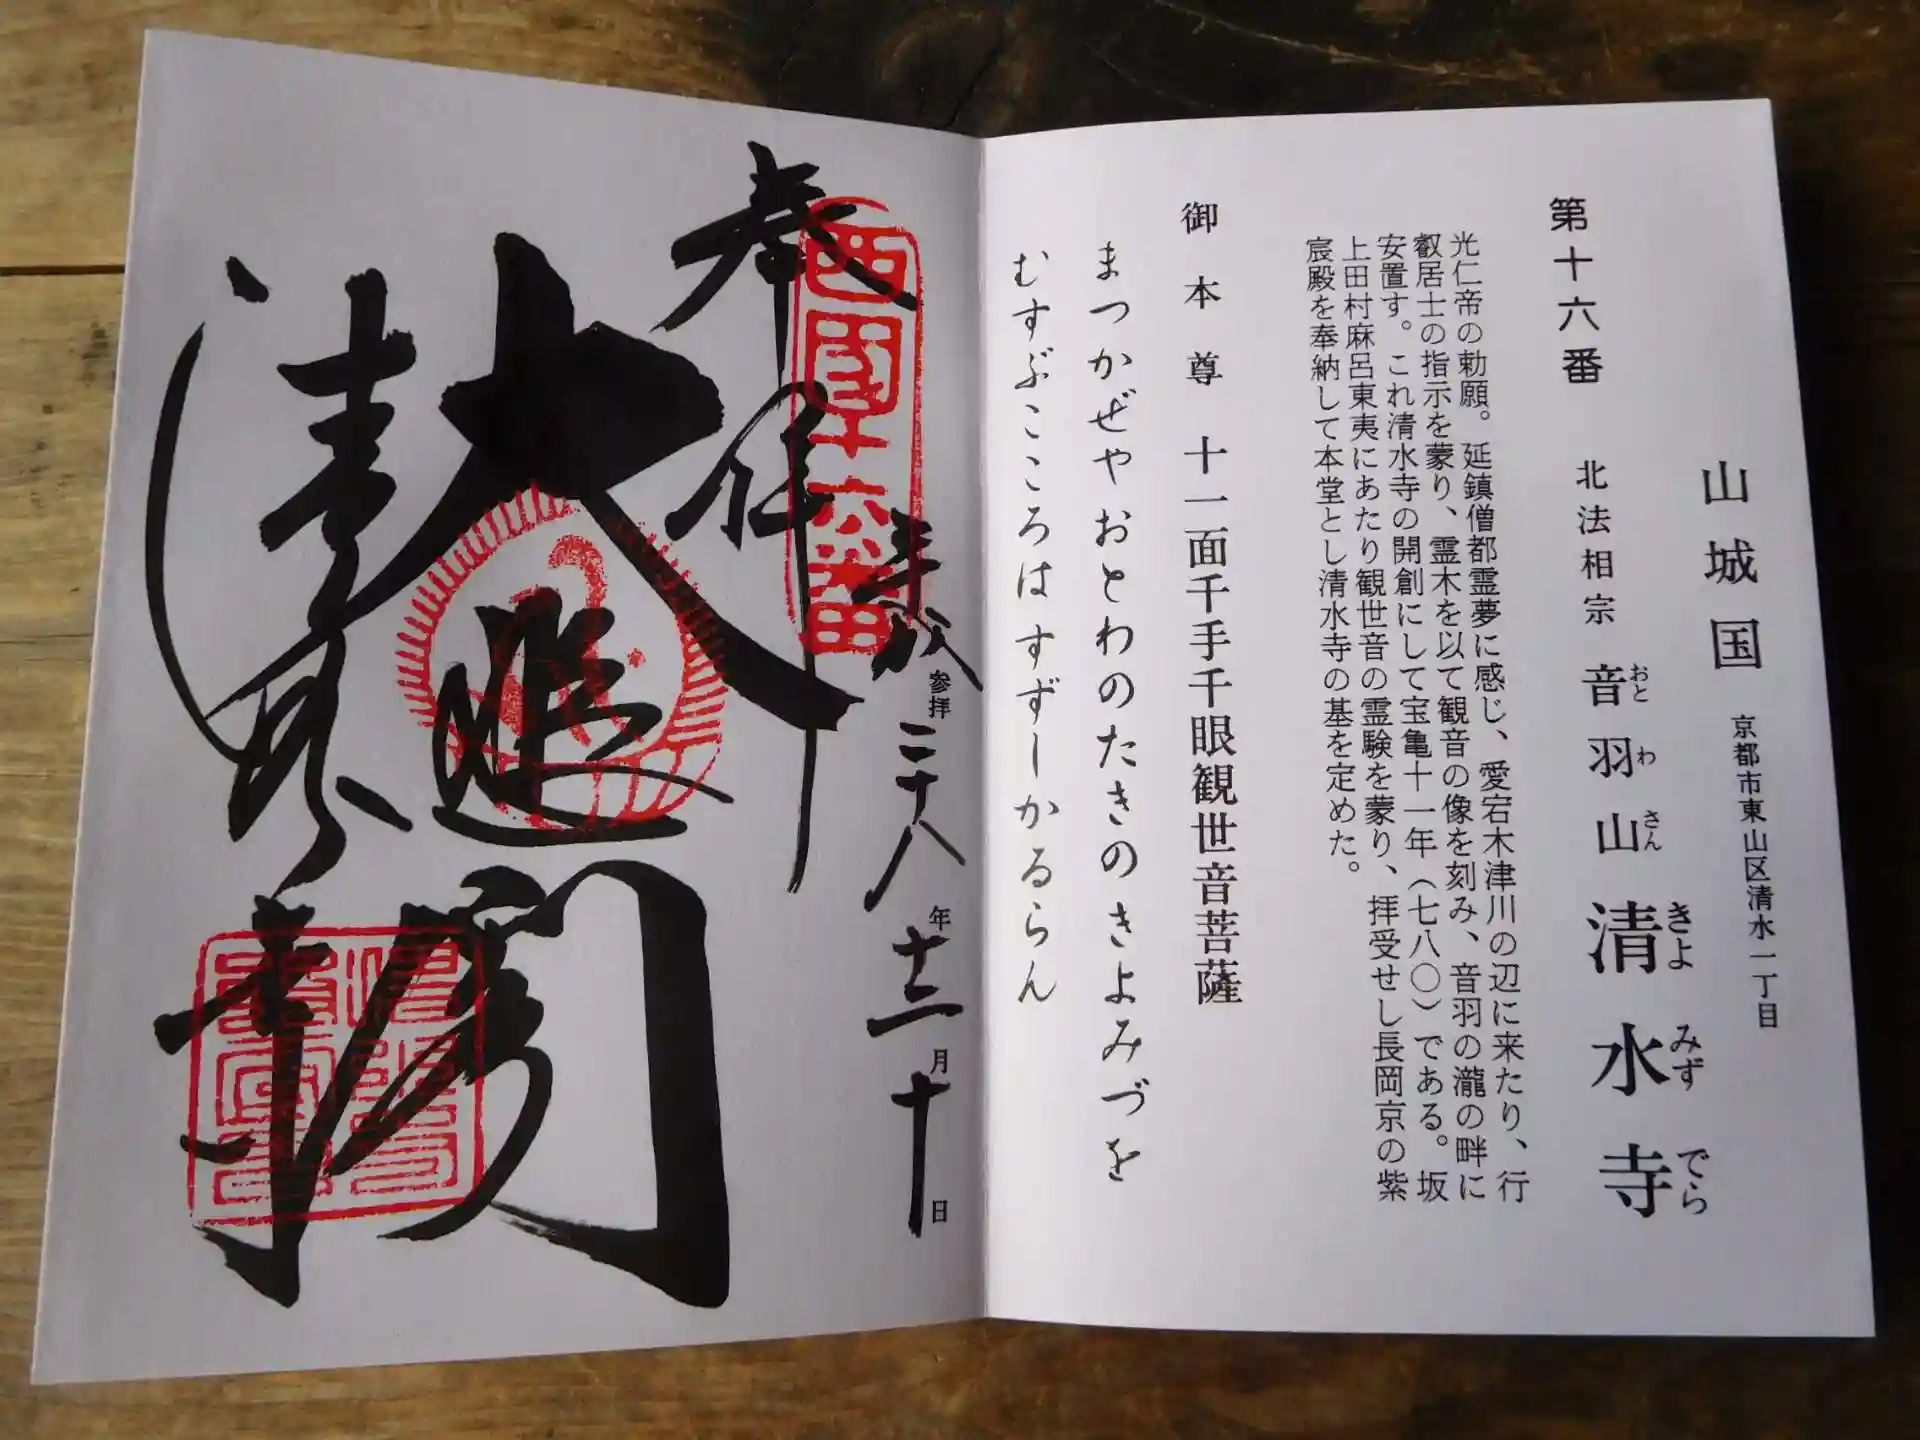 山城国 京都市東山区清水一丁目
第十六番 北法相宗 音羽山清水寺
おと わ さん きよ みず でら
光仁帝の勅願。延鎮僧都霊夢に感じ、愛宕木津川の辺に来たり、行
叡居士の指示を蒙り、霊木を以て観音の像を刻み、音羽の瀧の畔に
安置す。これ清水寺の開創にして宝亀十一年（七八〇）である。坂
上田村麻呂東夷にあたり観世音の霊験を蒙り、拝受せし長岡京の紫
宸殿を奉納して本堂とし清水寺の基を定めた。
御本尊 十一面千手千眼観世音菩薩
まつかぜやおとわのたきのきよみづを
むすぶこころはすずしかるらん
平成二十八年十二月十日
参拝
奉拝
西国十六番
大悲閣
清水寺